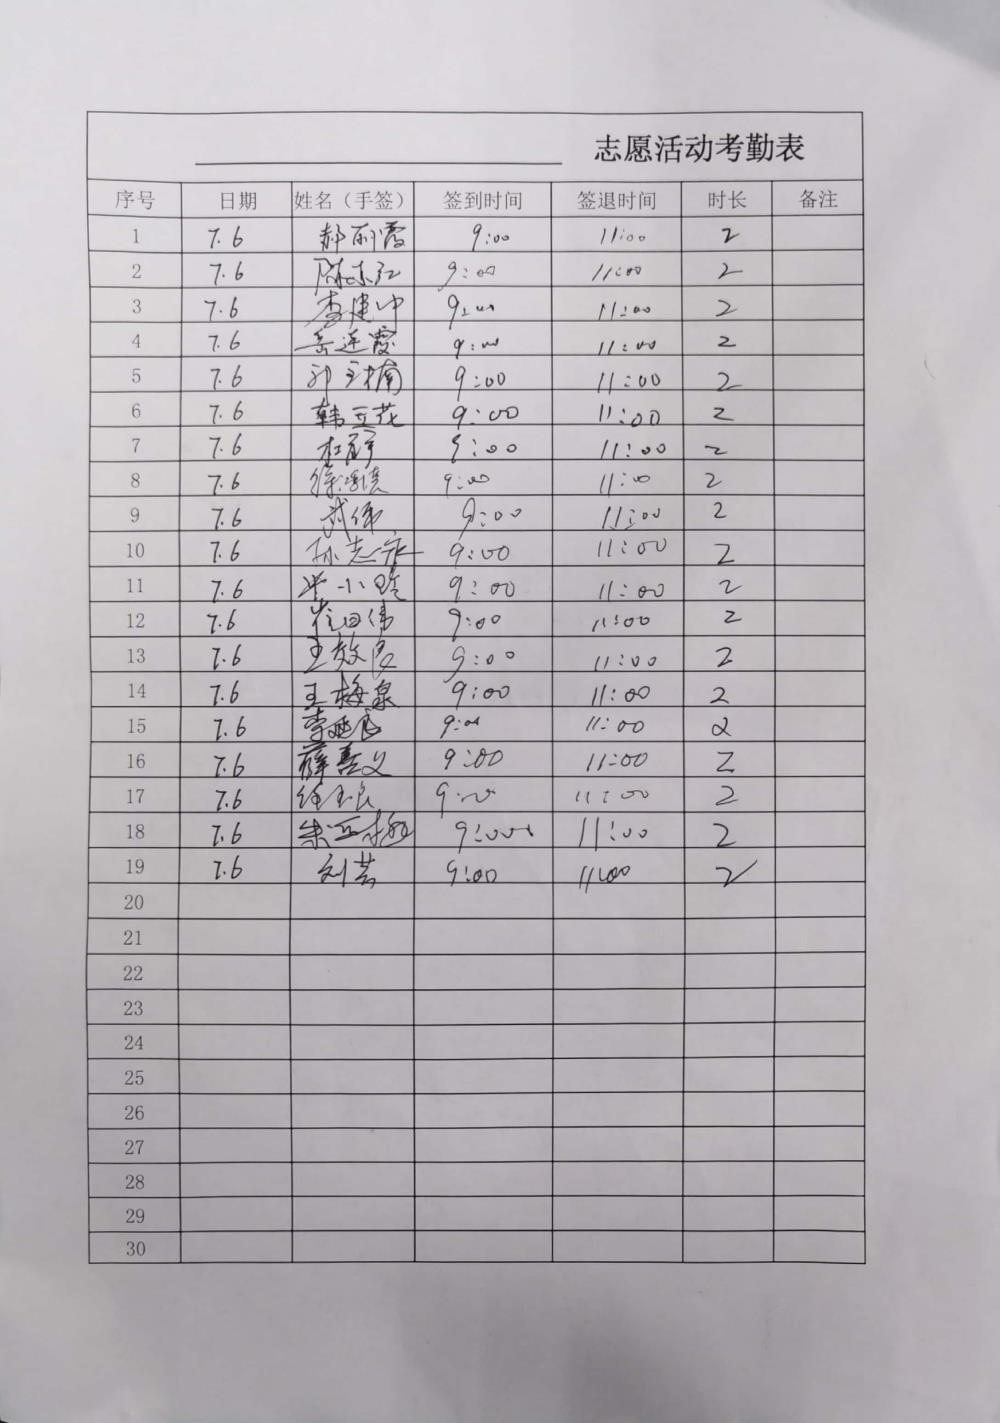 志愿活动考勤表
序号 日期 姓名（手签） 签到时间 签退时间 时长 备注
1 7.6 郝丽霞 9:00 11:00 2
2 7.6 陈东红 9:00 11:00 2
3 7.6 李建中 9:00 11:00 2
4 7.6 岳莲霞 9:00 11:00 2
5 7.6 9:00 11:00 2
6 7.6 韩豆花 9:00 11:00 2
7 7.6 9:00 11:00 2
8 7.6 9:00 11:00 2
9 7.6 武伟 9:00 11:00 2
10 7.6 孙志 9:00 11:00 2
11 7.6 小玲 9:00 11:00 2
12 7.6 崔田伟 9:00 11:00 2
13 7.6 王效良 9:00 11:00 2
14 7.6 王梅泉 9:00 11:00 2
15 7.6 李延良 9:00 11:00 2
16 7.6 薛喜义 9:00 11:00 2
17 7.6 任玉良 9:00 11:00 2
18 7.6 朱亚梅 9:00 11:00 2
19 7.6 刘芸 9:00 11:00 2
20
21
22
23
24
25
26
27
28
29
30